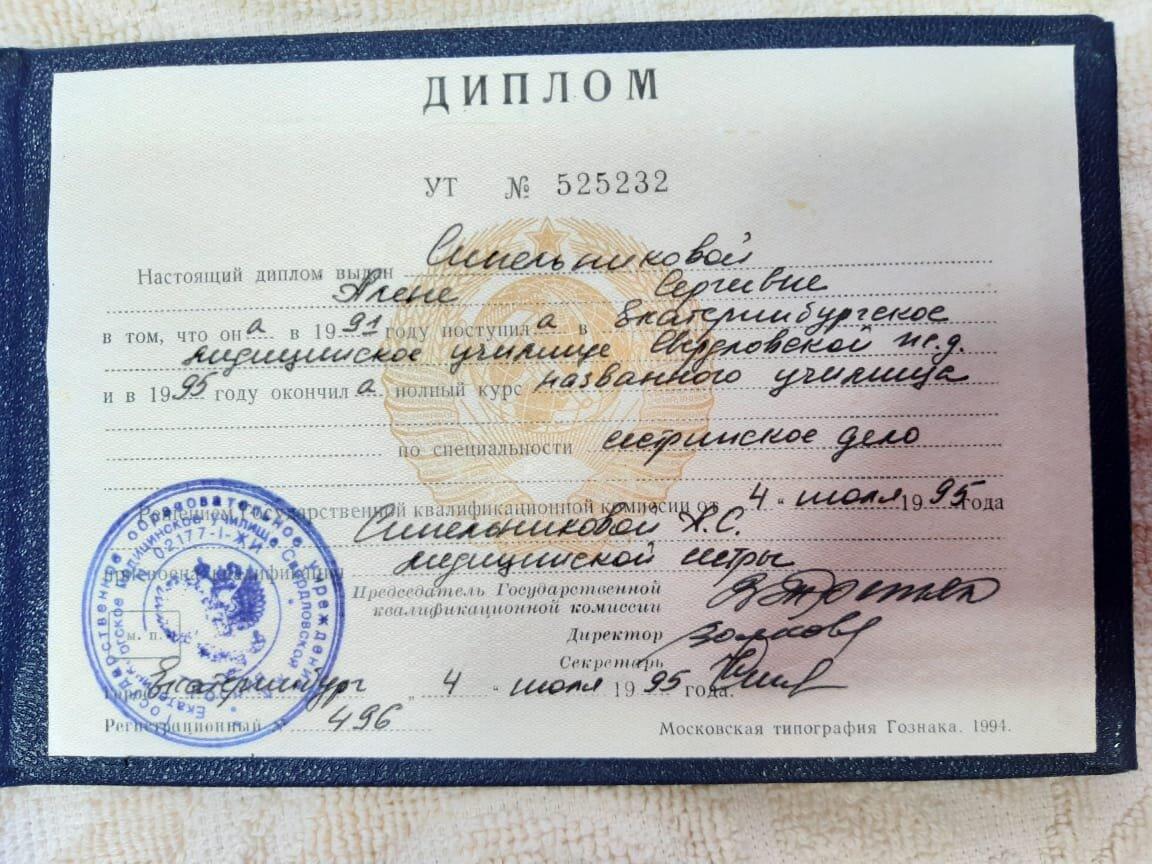 ДИПЛОМ
УТ № 525232
Настоящий диплом выдан Синельниковой
Алене Сергеевне
в том, что она в 1991 году поступила в Екатеринбургское
медицинское училище Свердловской ж.д.
и в 1995 году окончила полный курс названного училища
по специальности сестринское дело
Решением Государственной квалификационной комиссии от 4 " июля 1995 года
Синельниковой А.С.
присвоена квалификация медицинской сестры
Председатель Государственной
квалификационной комиссии
Директор
Секретарь
м. п.
Город Екатеринбург " 4 " июля 1995 года.
Регистрационный № 496
Московская типография Гознака. 1994.
Государственное образовательное учреждение
медицинское училище Свердловской
02177-1-ЖИ